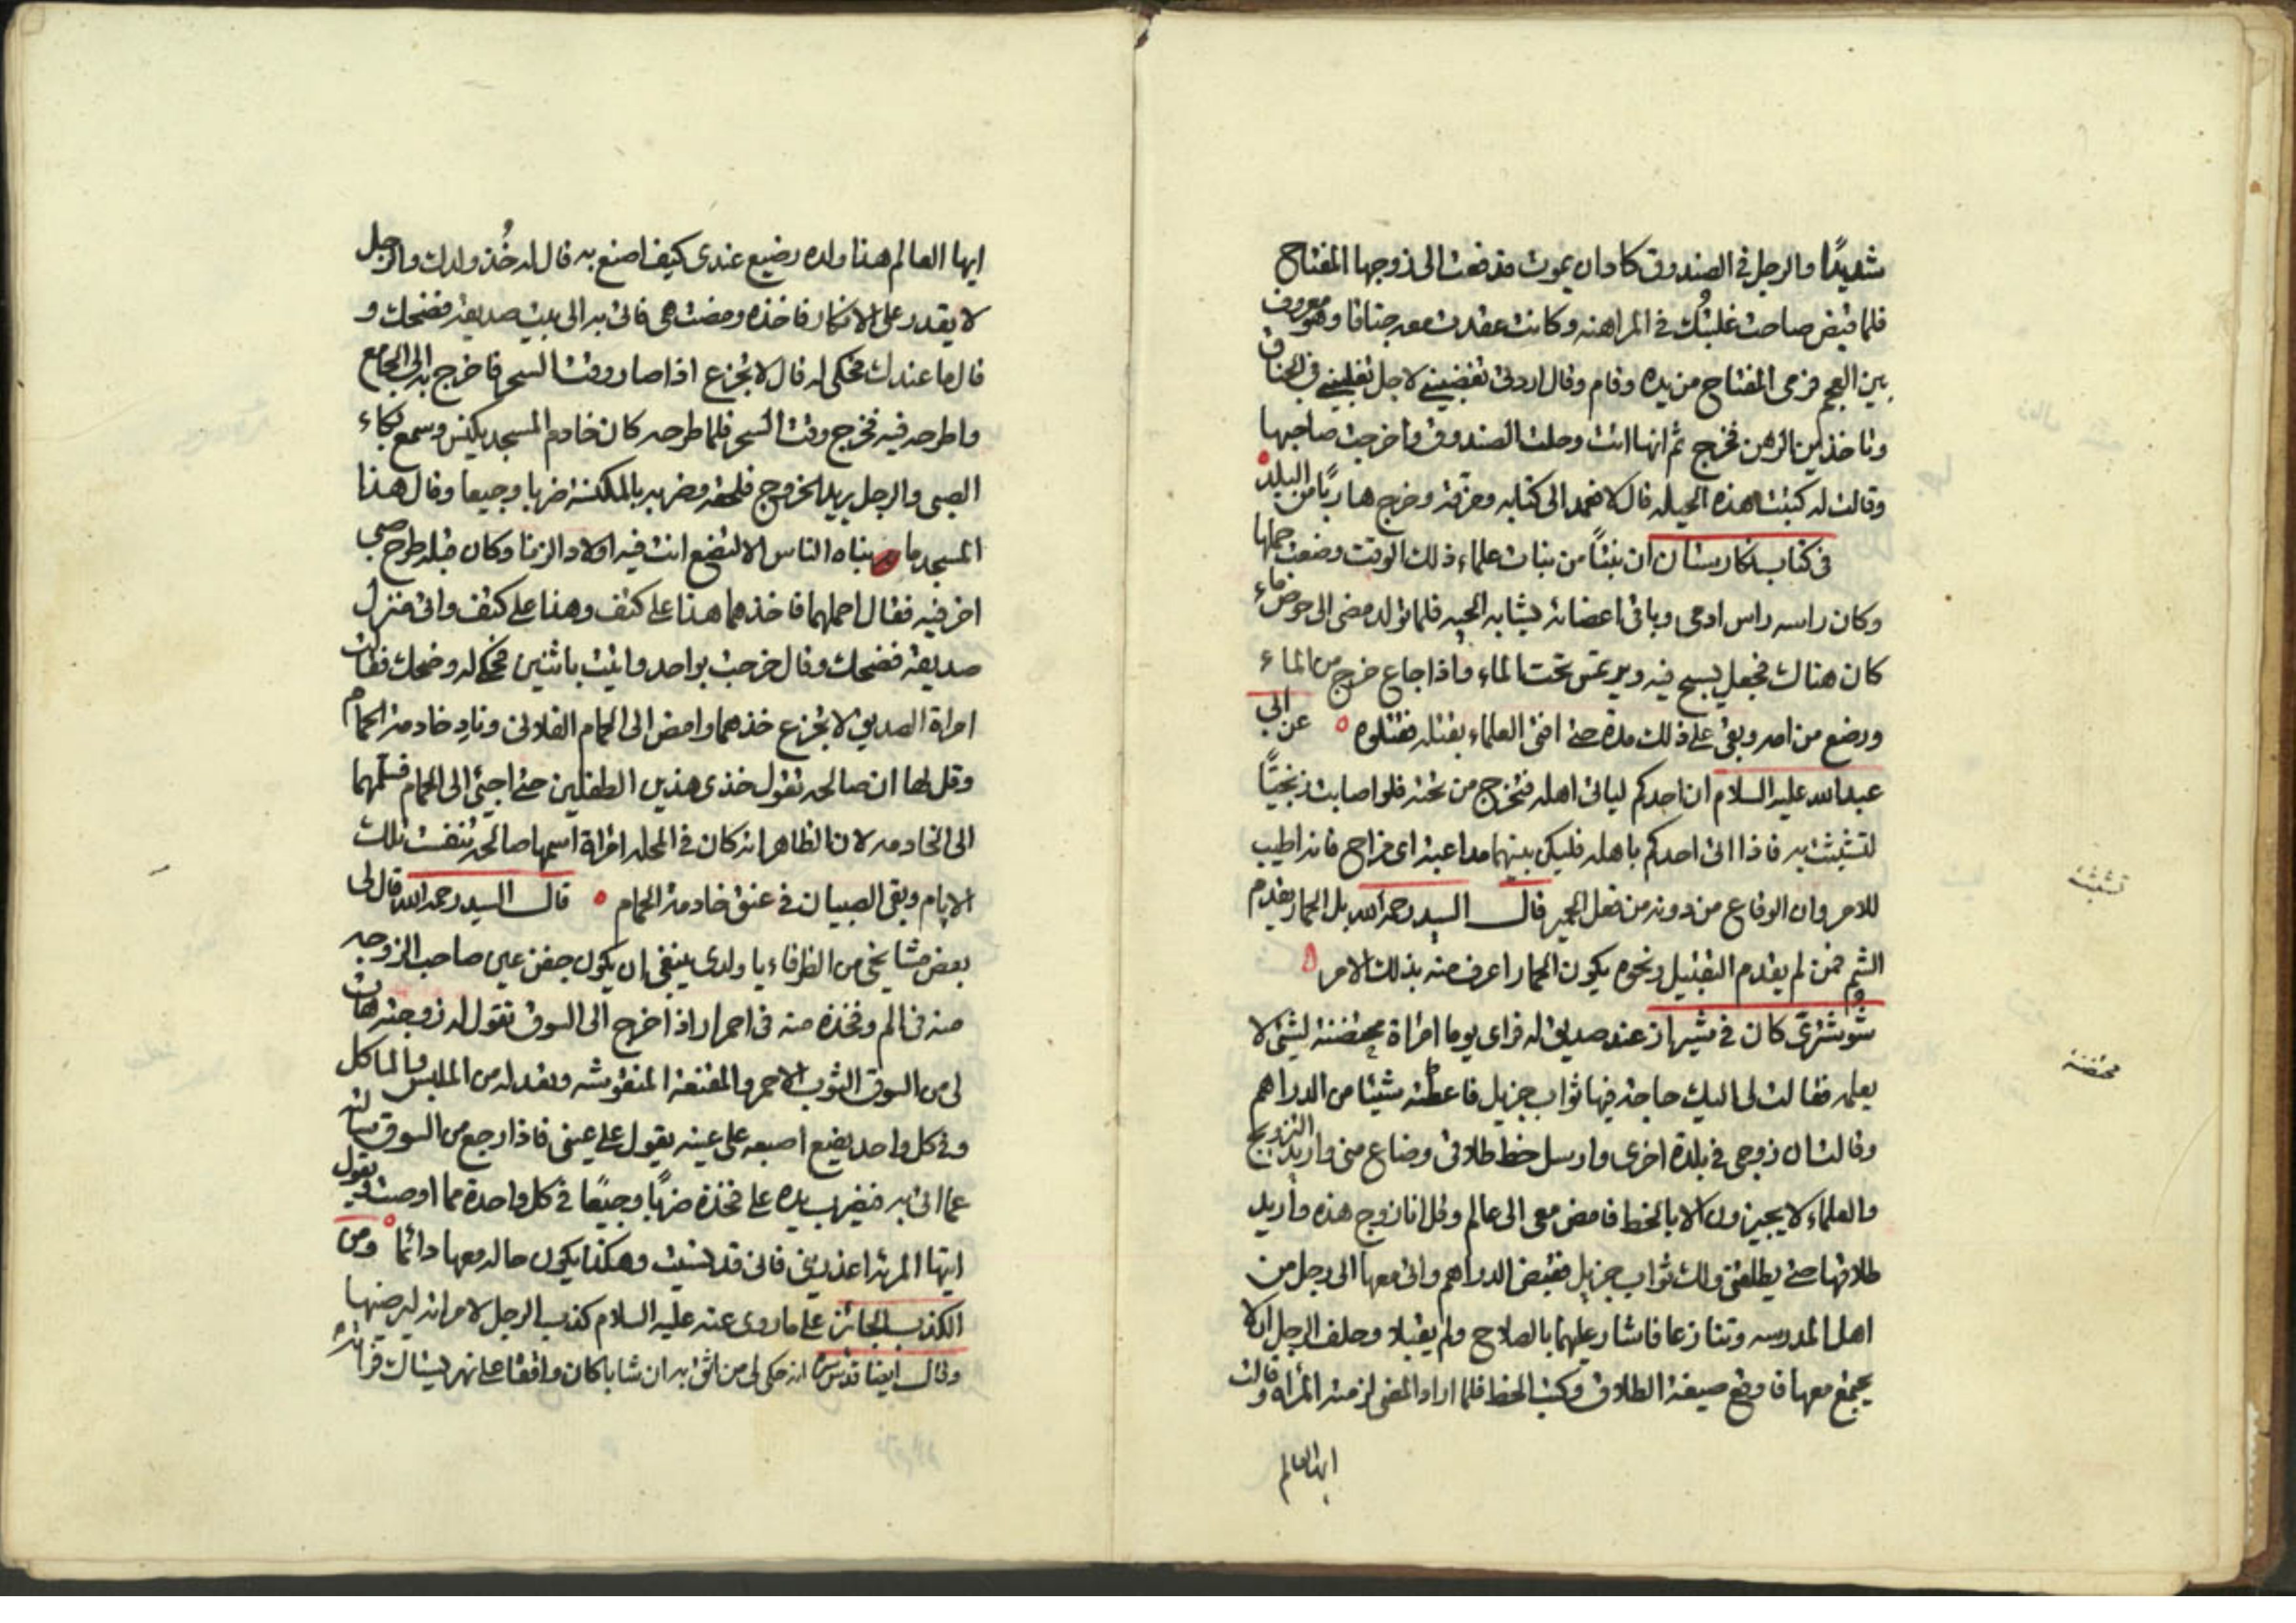 شديدًا والرجل في الصندوق كاد ان يموت فدفعت الى زوجها المفتاح
فلما قبض صاحت غلبتُك في المراهنه وكانت عقدت معه جناقا وهو معروف
بين العجم فرمى المفتاح من يده وقام وقال اردتى تغضبيني لاجل تغلبيني في الجناق
وتاخذين الرهن فخرج ثم انها اتت وحلت الصندوق واخرجت صاحبها
وقالت له كتبت هذه الحيله قال لا فعمد الى كتابه وحرقه وخرج هاربًا من البلد
في كتاب نكارستان ان بنتًا من بنات علماء ذلك الوقت وضعت حملها
وكان راسه راس ادمى وباقي اعضائه يشابه الحيه فلما تولد مضى الى حوض ماء
كان هناك فجعل يسبح فيه ويرتمس تحت الماء واذا جاع خرج من الماء
ورضع من امه وبقى على ذلك مدة حتى افتى العلماء بقتله فقتلوه عن ابي
عبد الله عليه السلام ان احدكم لياتي اهله فتخرج من تحته فلو اصابت زنجيًّا
لتشبثت به فاذا اتى احدكم باهله فليكن بينهما مداعبة اى مزاح فانه اطيب
للامر وان الوقاع من دونه من فعل الحمير قال السيد رحمه الله بل الحمار يقدم
الشم فمن لم يقدم التقبيل ونحوه يكون الحمار اعرف منه بذلك الامر
شوشترىّ كان في شيراز عند صديق له فراى يوما امراة محتضنة لشئ لا
يعلمه فقالت لى اليك حاجة فيها ثواب جزيل فاعطته شيئا من الدراهم
وقالت ان زوجى في بلدة اخرى وارسل خط طلاقى وضاع منى واريد التزويج
والعلماء لا يجيزون الا بالخط فامض معى الى عالم وقل انا زوج هذه واريد
طلاقها حتى يطلقنى ولك ثواب جزيل فقبض الدراهم واتى معها الى رجل من
اهل المدرسه وتنازعا فاشار عليهما بالصلاح ولم يقبلا وحلف الرجل ان لا
يجمع معها فاوقع صيغة الطلاق وكتب الخط فلما اراد المضى لزمته المراة وقالت
ايها العالم
تشبث
محتضنة
ايها العالم هذا ولده رضيع عندى كيف اصنع به قال له خُذ ولدك والرجل
لا يقدر على الانكار فاخذه ومضت هى فاتى به الى بيت صديقه فضحك و
قال ما عندك فحكى له قال لا تجزع اذا صار وقت السحر فاخرج به الى الجامع
واطرحه فيه فخرج وقت السحر فلما طرحه كان خادم المسجد يكنس وسمع بكاء
الصبى والرجل يريد الخروج فلحقه وضربه بالمكنسة ضربا وجيعا وقال هذا
المسجد ما بناه الناس الا لتضع انت فيه اولاد الزنا وكان قبله طرح صبى
اخر فيه فقال احملهما فاخذهما هذا على كتف وهذا على كتف واتى منزل
صديقه فضحك وقال خرجت بواحد واتيت باثنين فحكى له وضحك فقالت
امراة الصديق لا تجزع خذهما وامض الى الحمام الفلانى وناد خادمة الحمام
وقل لها ان صالحه تقول خذى هذين الطفلين حتى اجئ الى الحمام فسلمهما
الى الخادمه لان الظاهر انه كان في المحله امراة اسمها صالحه تنفست تلك
الايام وبقى الصبيان في عنق خادمة الحمام قال السيد رحمه الله قال لى
بعض مشايخى من الظرفاء يا ولدى ينبغى ان يكون جفن عين صاحب الزوجه
منه في الم وفخذه منه في احمرار اذا خرج الى السوق تقول له زوجته هات
لى من السوق الثوب الاحمر والمقنعة المنقوشه وتعد له من الملبس والماكل
وفي كل واحد يضع اصبعه على عينه يقول على عينى فاذا رجع من السوق سالته
عما اتى به فيضرب يده على فخذه ضربًا وجيعًا في كل واحدة مما اوصت فيقول
ايتها المرئة اعذرينى فانى قد نسيت وهكذا يكون حاله معها دائما ومن
الكذب الجائز على ما روى عنه عليه السلام كذب الرجل لامراته ليرضيها
وقال ايضا قدس سره انه حكى لى من اثق به ان شابا كان واقفا على نهر يستاك